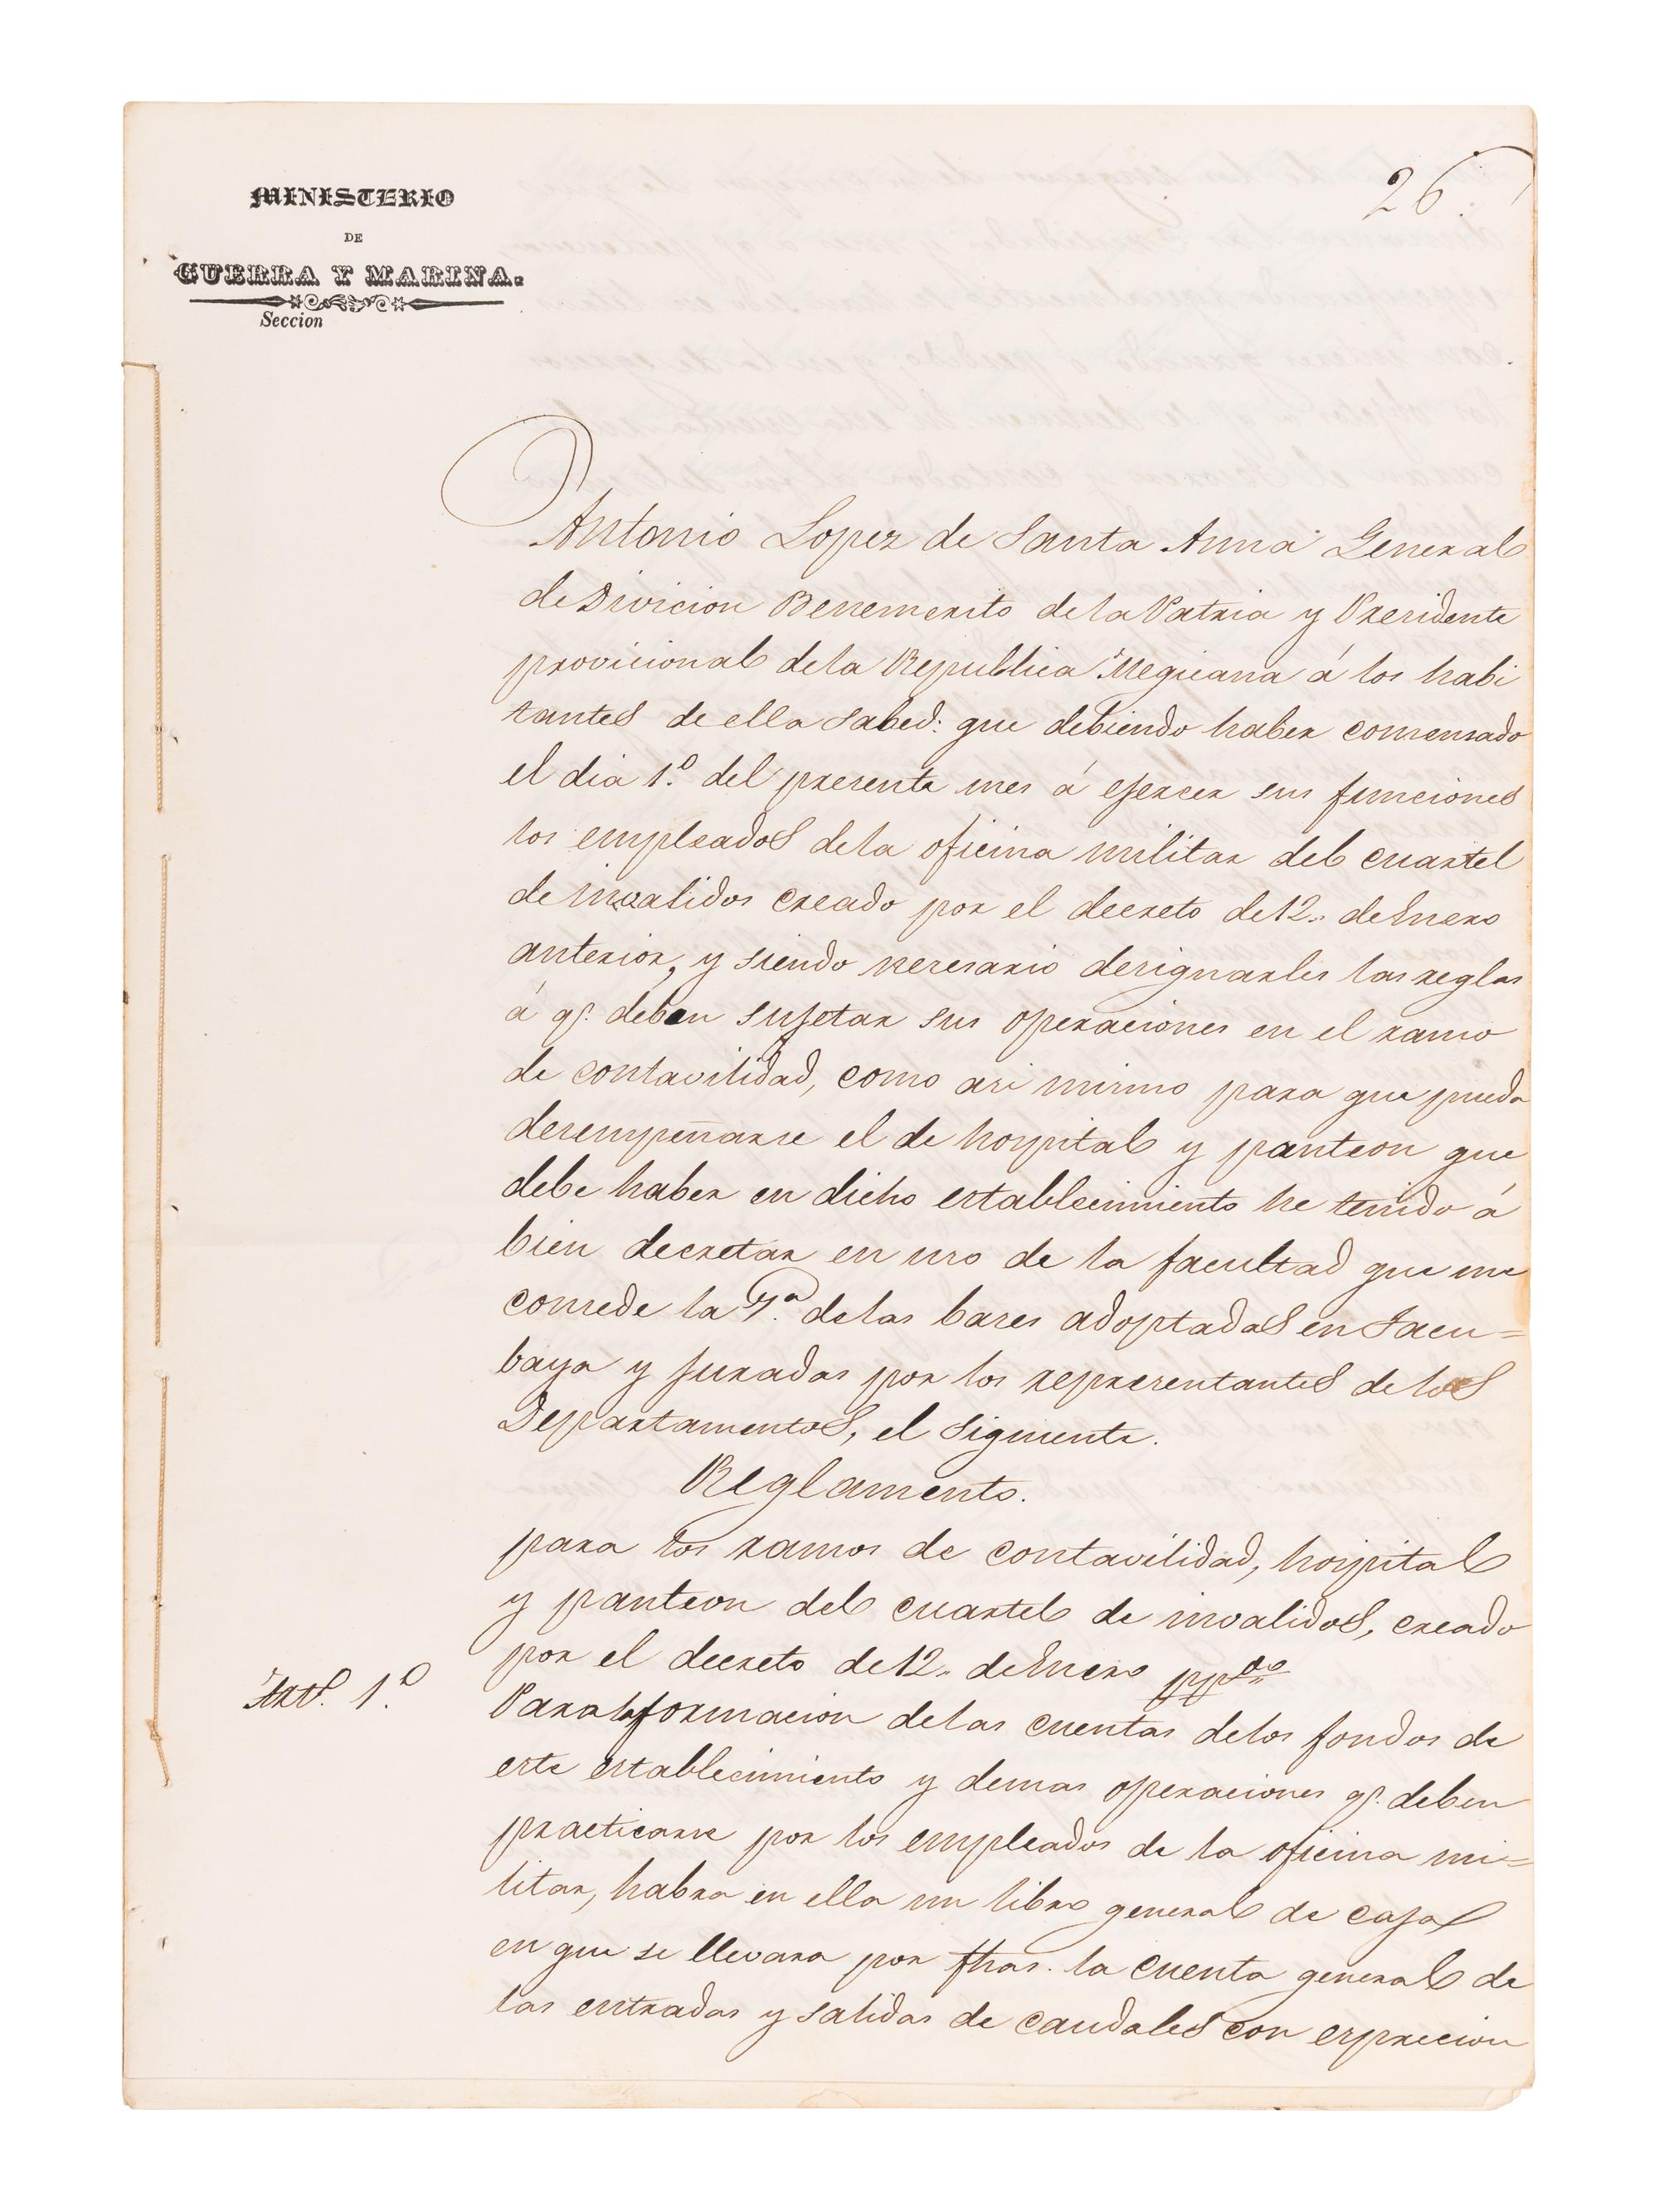 26.
MINISTERIO
DE
GUERRA Y MARINA.
Seccion
Antonio Lopez de Santa Anna General
de Divicion Benemerito de la Patria y Presidente
provicional de la Republica Megicana á los habi
tantes de ella sabed: que debiendo haber comensado
el dia 1.º del presente mes á ejercer sus funciones
los empleados de la oficina militar del cuartel
de invalidos creado por el decreto de 12,, de Enero
anterior, y siendo necesario designarles las reglas
á qᵉ. deben sujetar sus operaciones en el ramo
de contavilidad, como asi mismo para que pueda
desempeñarse el de hospital y panteon que
debe haber en dicho establecimiento he tenido á
bien decretar en uso de la facultad que me
consede la 7.ª de las bases adoptadas en Tacu=
baya y juradas por los representantes de los
Departamentos, el siguiente.
Reglamento.
para los ramos de contavilidad, hospital
y panteon del cuartel de invalidos, creado
por el decreto de 12,, de Enero ppᵈᵒ
Artº. 1.º
Para la formacion de las cuentas de los fondos de
este establecimiento y demas operaciones qᵉ. deben
practicarse por los empleados de la oficina mi=
litar, habra en ella un libro general de caja
en que se llevara por fhas. la cuenta general de
las entradas y salidas de caudales con esprecion